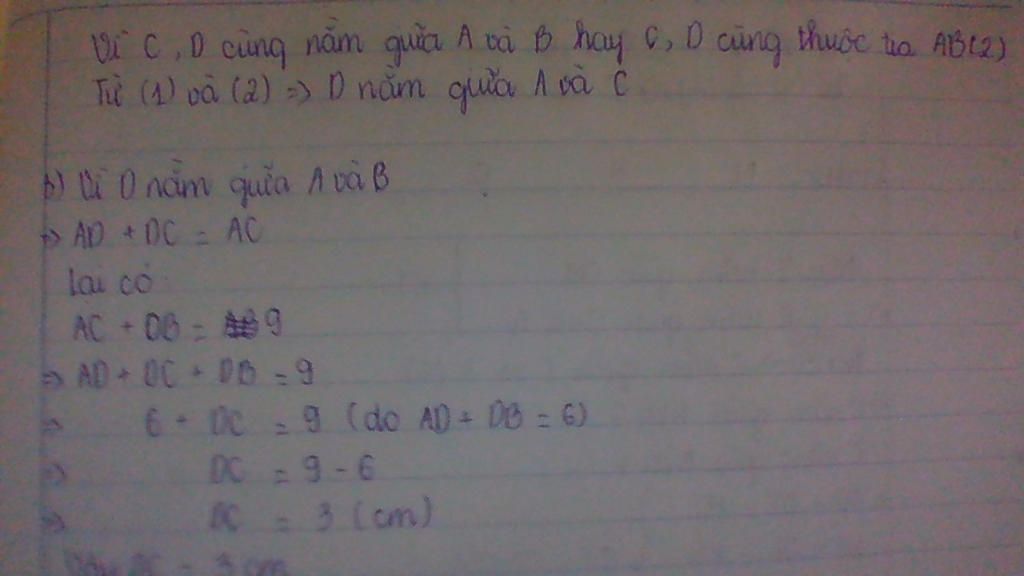 Vì C, D cùng nằm giữa A và B hay C, D cùng thuộc tia AB(2)
Từ (1) và (2) => D nằm giữa A và C
b) Vì D nằm giữa A và B
=> AD + DC = AC
Lại có
AC + DB = 9
=> AD + DC + DB = 9
=> 6 + DC = 9 (do AD + DB = 6)
=> DC = 9 - 6
=> DC = 3 (cm)
Vậy DC = 3 cm